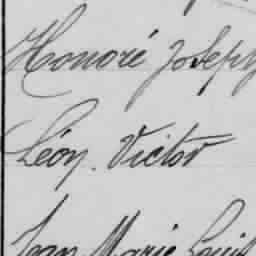 Honoré Joseph
Léon. Victor
Jean Marie Louis